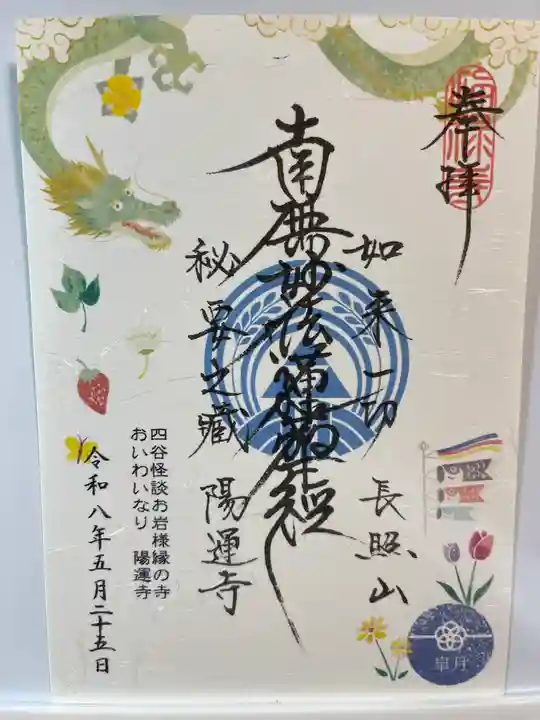 奉拝
如来一切
南無妙法蓮華経
秘要之蔵
長照山
陽運寺
四谷怪談お岩様縁の寺
おいわいなり 陽運寺
令和八年五月二十五日
皐月